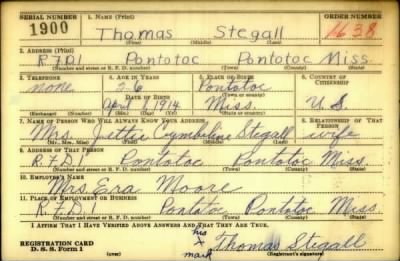 SERIAL NUMBER 1. NAME (Print) ORDER NUMBER
1900 Thomas Stegall 1638
(First) (Middle) (Last)
2. ADDRESS (Print)
R.F.D.1 Pontotoc Pontotoc Miss.
(Number and street or R. F. D. number) (Town) (County) (State)
3. TELEPHONE 4. AGE IN YEARS 5. PLACE OF BIRTH 6. COUNTRY OF CITIZENSHIP
none 26 Pontotoc
(Town or county)
DATE OF BIRTH
April 1914 Miss. U.S.
(Exchange) (Number) (Mo.) (Day) (Yr.) (State or country)
7. NAME OF PERSON WHO WILL ALWAYS KNOW YOUR ADDRESS 8. RELATIONSHIP OF THAT PERSON
Mrs. Stegall wife
(Mr., Mrs., Miss) (First) (Middle) (Last)
9. ADDRESS OF THAT PERSON
R.F.D.1 Pontotoc Pontotoc Miss.
(Number and street or R. F. D. number) (Town) (County) (State)
10. EMPLOYER'S NAME
Mrs. Era Moore
11. PLACE OF EMPLOYMENT OR BUSINESS
R.F.D.1 Pontotoc Pontotoc Miss.
(Number and street or R. F. D. number) (Town) (County) (State)
I AFFIRM THAT I HAVE VERIFIED ABOVE ANSWERS AND THAT THEY ARE TRUE.
his
REGISTRATION CARD X Thomas Stegall
D. S. S. Form 1 mark (Registrant's signature)